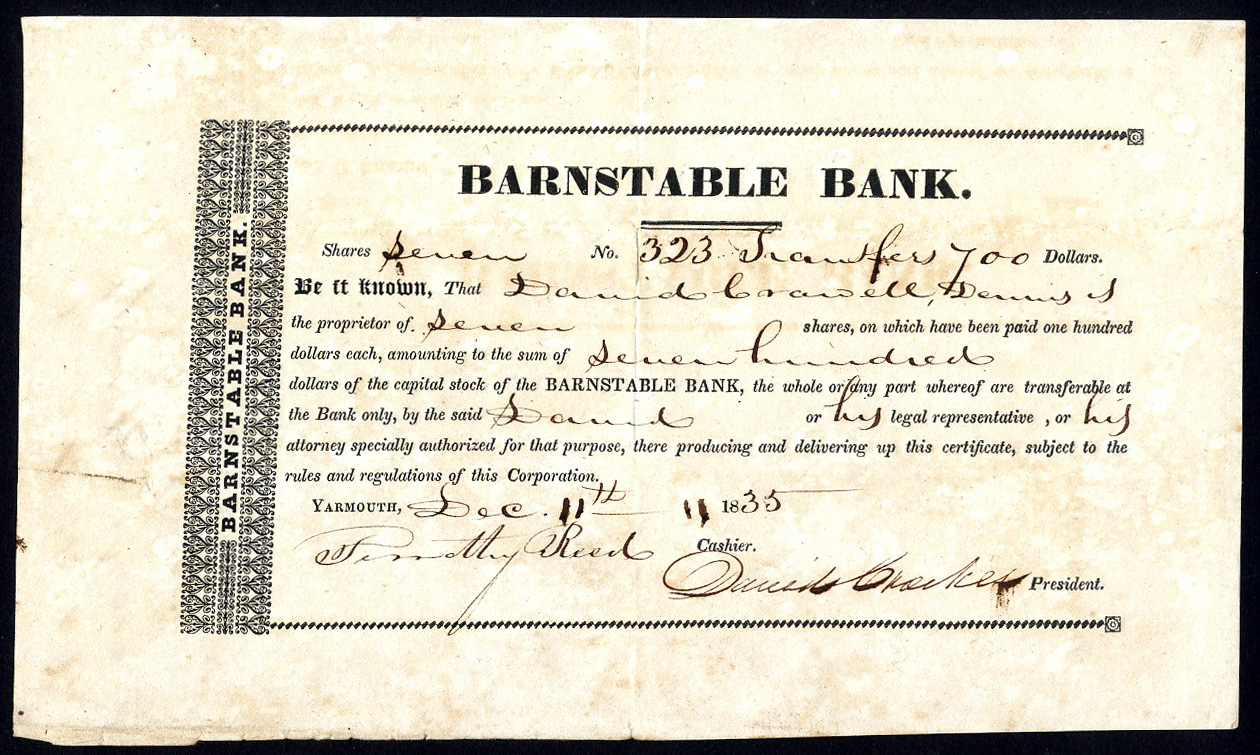 BARNSTABLE BANK.
BARNSTABLE BANK.
Shares seven No. 323 Transfers 700 Dollars.
Be it known, That David Crowell, Dennis is
the proprietor of seven shares, on which have been paid one hundred
dollars each, amounting to the sum of seven hundred
dollars of the capital stock of the BARNSTABLE BANK, the whole or any part whereof are transferable at
the Bank only, by the said David or his legal representative , or his
attorney specially authorized for that purpose, there producing and delivering up this certificate, subject to the
rules and regulations of this Corporation.
YARMOUTH, Dec. 11th 11 1835
Timothy Reed Cashier.
David Crocker President.